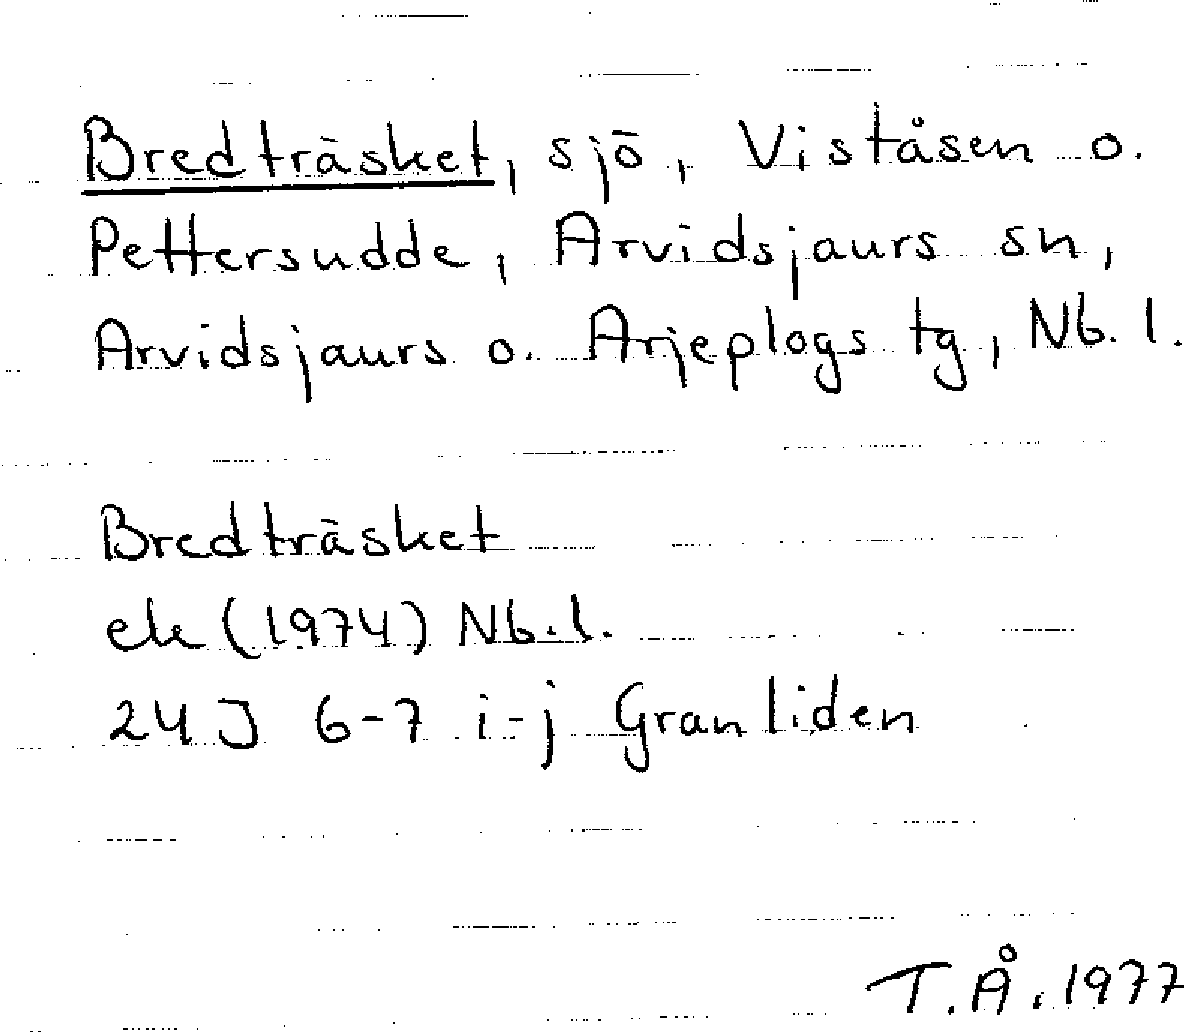 Bredträsket, sjö, Viståsen o.
Pettersudde, Arvidsjaurs sn,
Arvidsjaurs o. Arjeplogs tg, Nb. l.
Bredträsket
ek (1974) Nb.l.
24J 6-7 i-j Granliden
T.Å. 1977